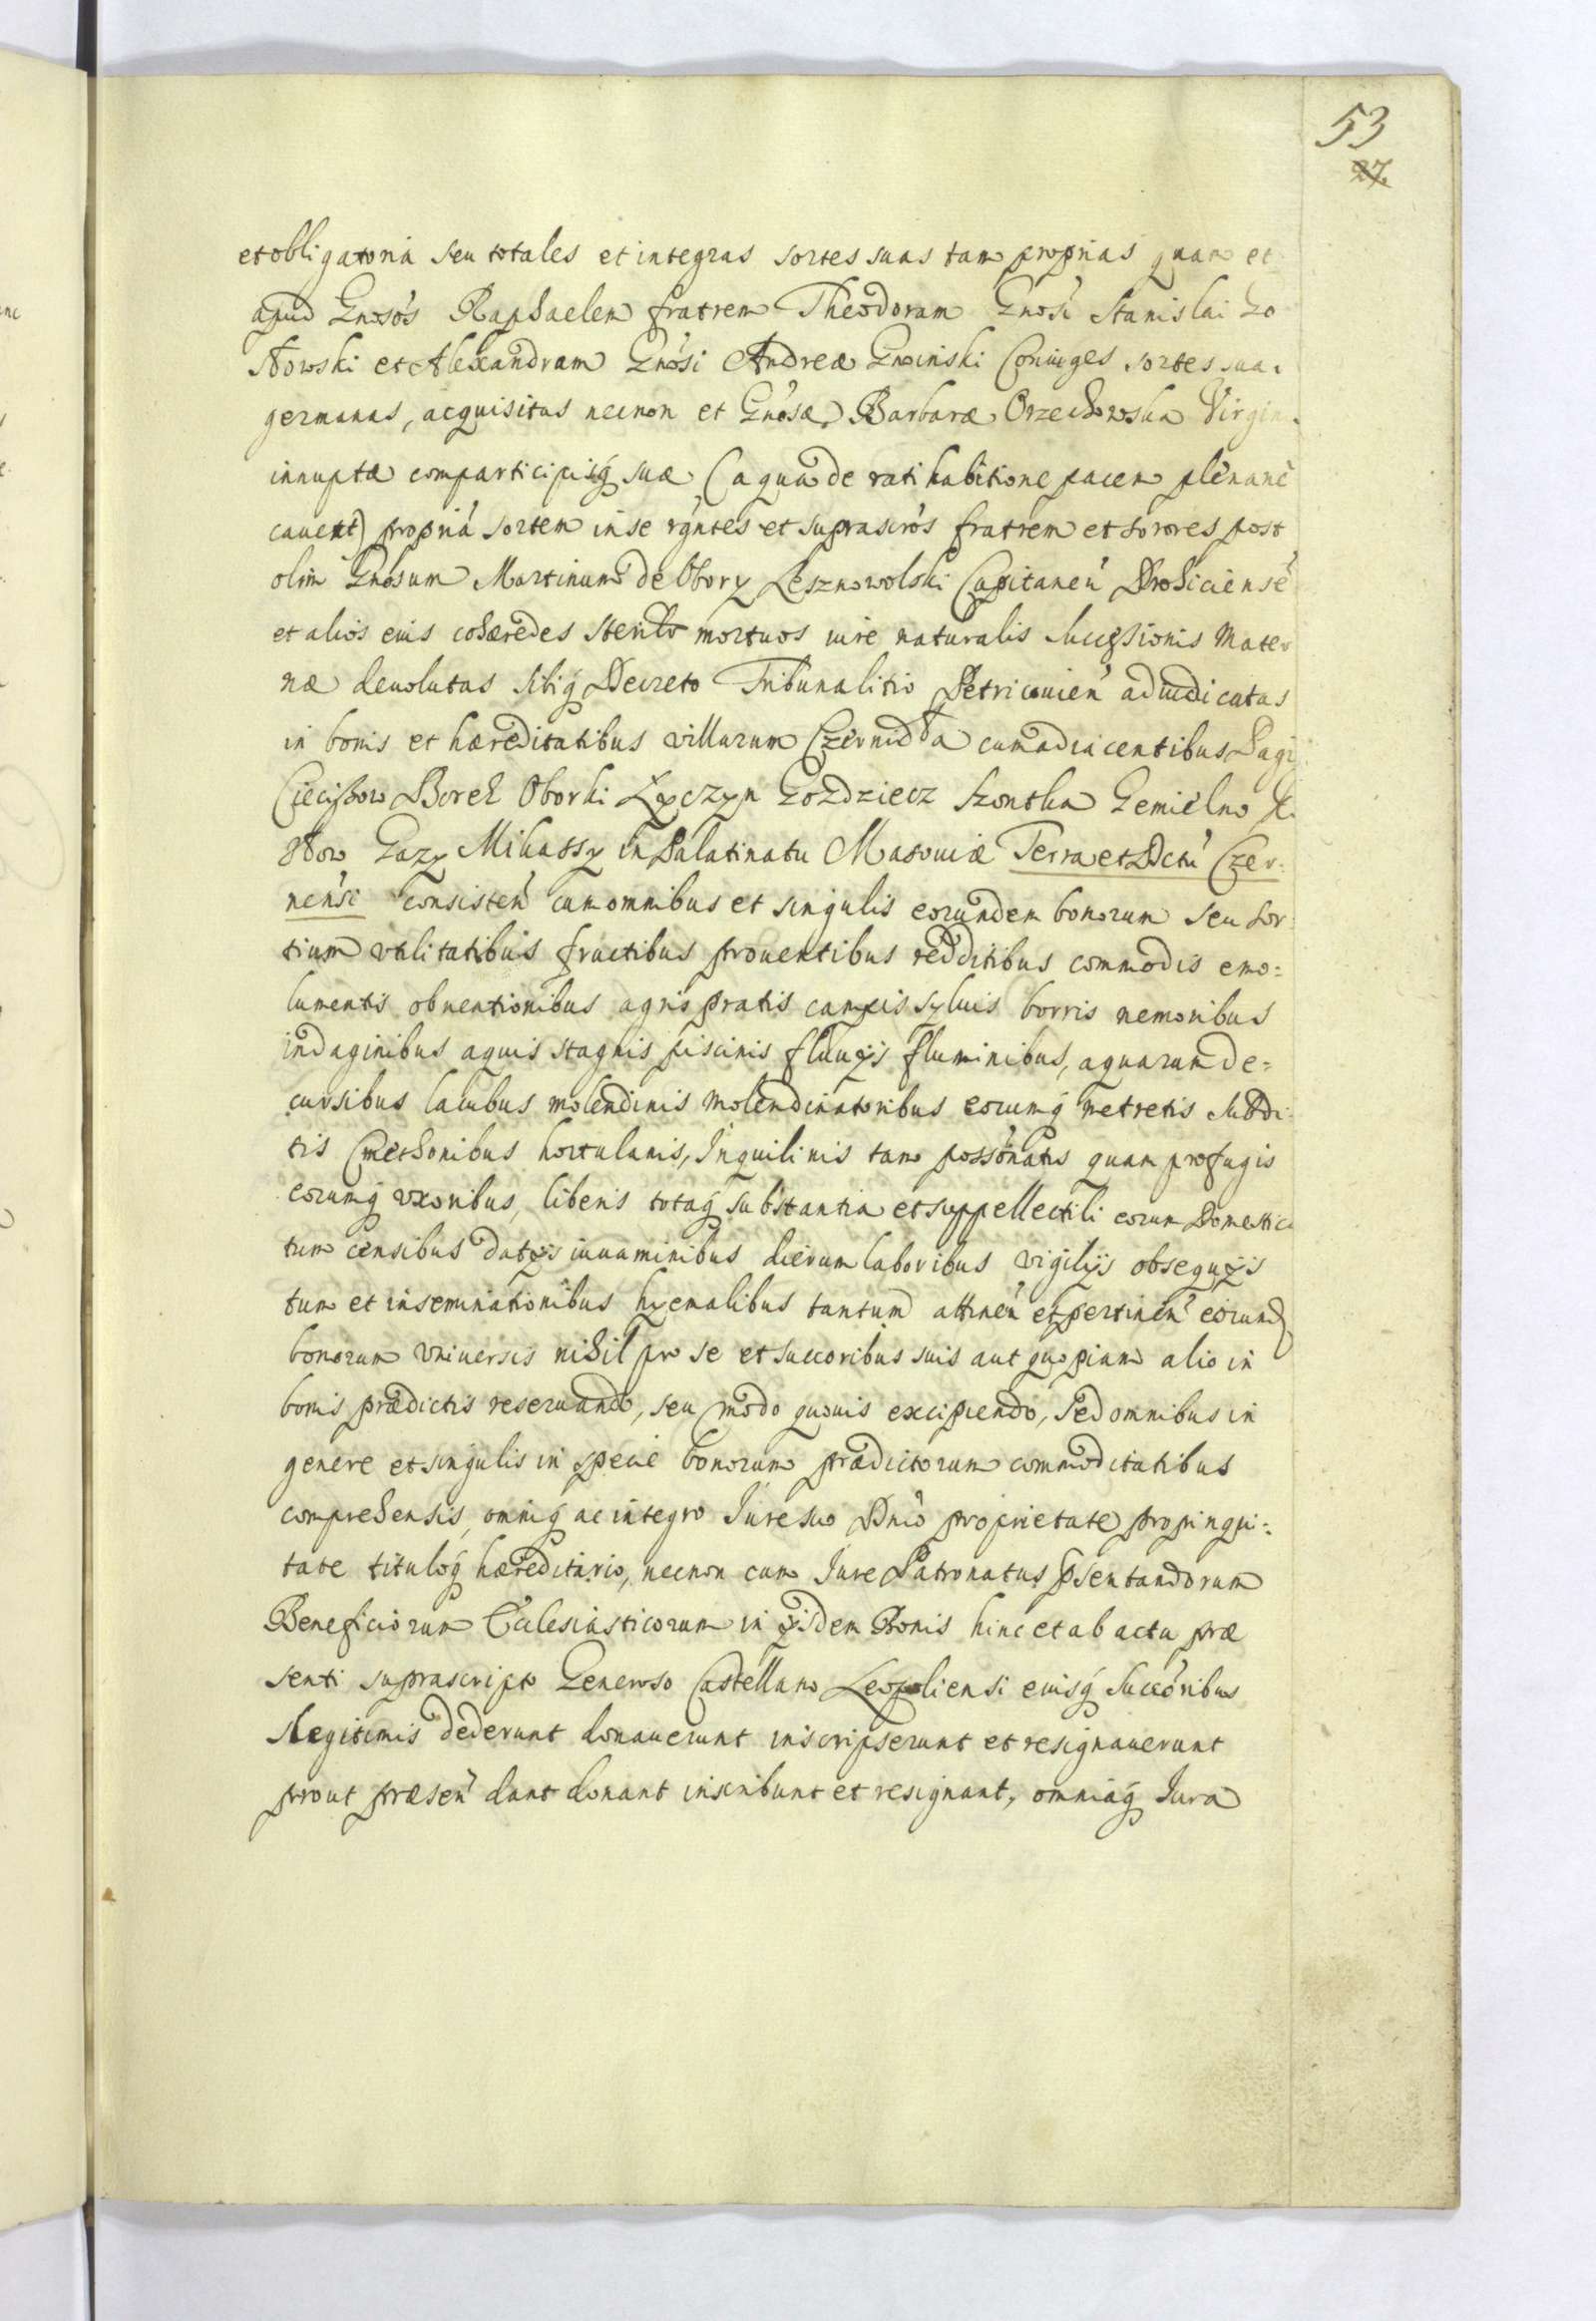 53
27.
et obligatoria seu totales et integras sortes suas tam proprias quam et
apud Gnosós Raphaelem fratrem Theodoram Gnosi Stanislai Go
stowski et Alexandram Gnósi Andreæ Gnoinski Coniuges sortes suas
germanas, acquisitas necnon et Gnósæ Barbaræ Orzechowska Virgin.
innuptæ comparticipisq suæ (a qua de ratihabitione pacem plénanè
cavent) propriá sortem in se rgntes et suprascrós fratrem et sorores post
olim Gnósum Martinum de Obory Lesznowolski Capitaneú Drohiciensé
et aliós eius cohæredes sterile mortuos iure naturalis successionis Mater
næ deuolutas sibiq Decreto Tribunalitio Petricouień adiudicatas
in bonis et hæreditatibus villarum Czernidła cum adiacentibus Pagi
Ciecißow Borek Oborki Łyczyn Gozdziecz Szontka Gemielno K.
stow Gazy Mikassy in Palatinatu Masouiæ Terra et Dictú Czer-
nénsi consisteń cum omnibus et singulis eorundem bonorum seu sor
tium vtilitatibus fructibus prouentibus redditibus commodis emo=
lumentis obuentionibus agris pratis campis syluis borris nemoribus
indaginibus aquis stagnis piscinis fluuijs fluminibus, aquarum de=
cursibus lacubus molendinis molendinatoribus eorumq metretis Subdi
tis Cmethonibus hortulanis, Inquilinis tam possónatis quam profugis
eorumq vxoribus, liberis totaq substantia et suppellectili eorum Domestica
tum censibus datijs iuuaminibus dierum laboribus vigilijs obsequijs
tum et inseminationibus hyemalibus tantum attineń et pertineń eorund
bonorum vniuersis nihil pro se et succoribus suis aut quopiam alio in
bonis prædictis reseruando, seu modo quouis excipiendo, sed omnibus in
genere et singulis in specie bonorum prædictorum commoditatibus
comprehensis, omniq ac integro Iure suo Dnió proprietate propinqui=
tate tituloq hæreditario, necnon cum Iure Patronatus psentandorum
Beneficiorum Ecclesiasticorum in ijsdem Bonis hinc et ab actu præ
senti suprascripto Generoso Castellano Leopoliensi eiusq Succóribus
Legitimis dederunt donauerunt inscripserunt et resignauerunt
prout præseń dant donant inscribunt et resignant, omniaq Iura